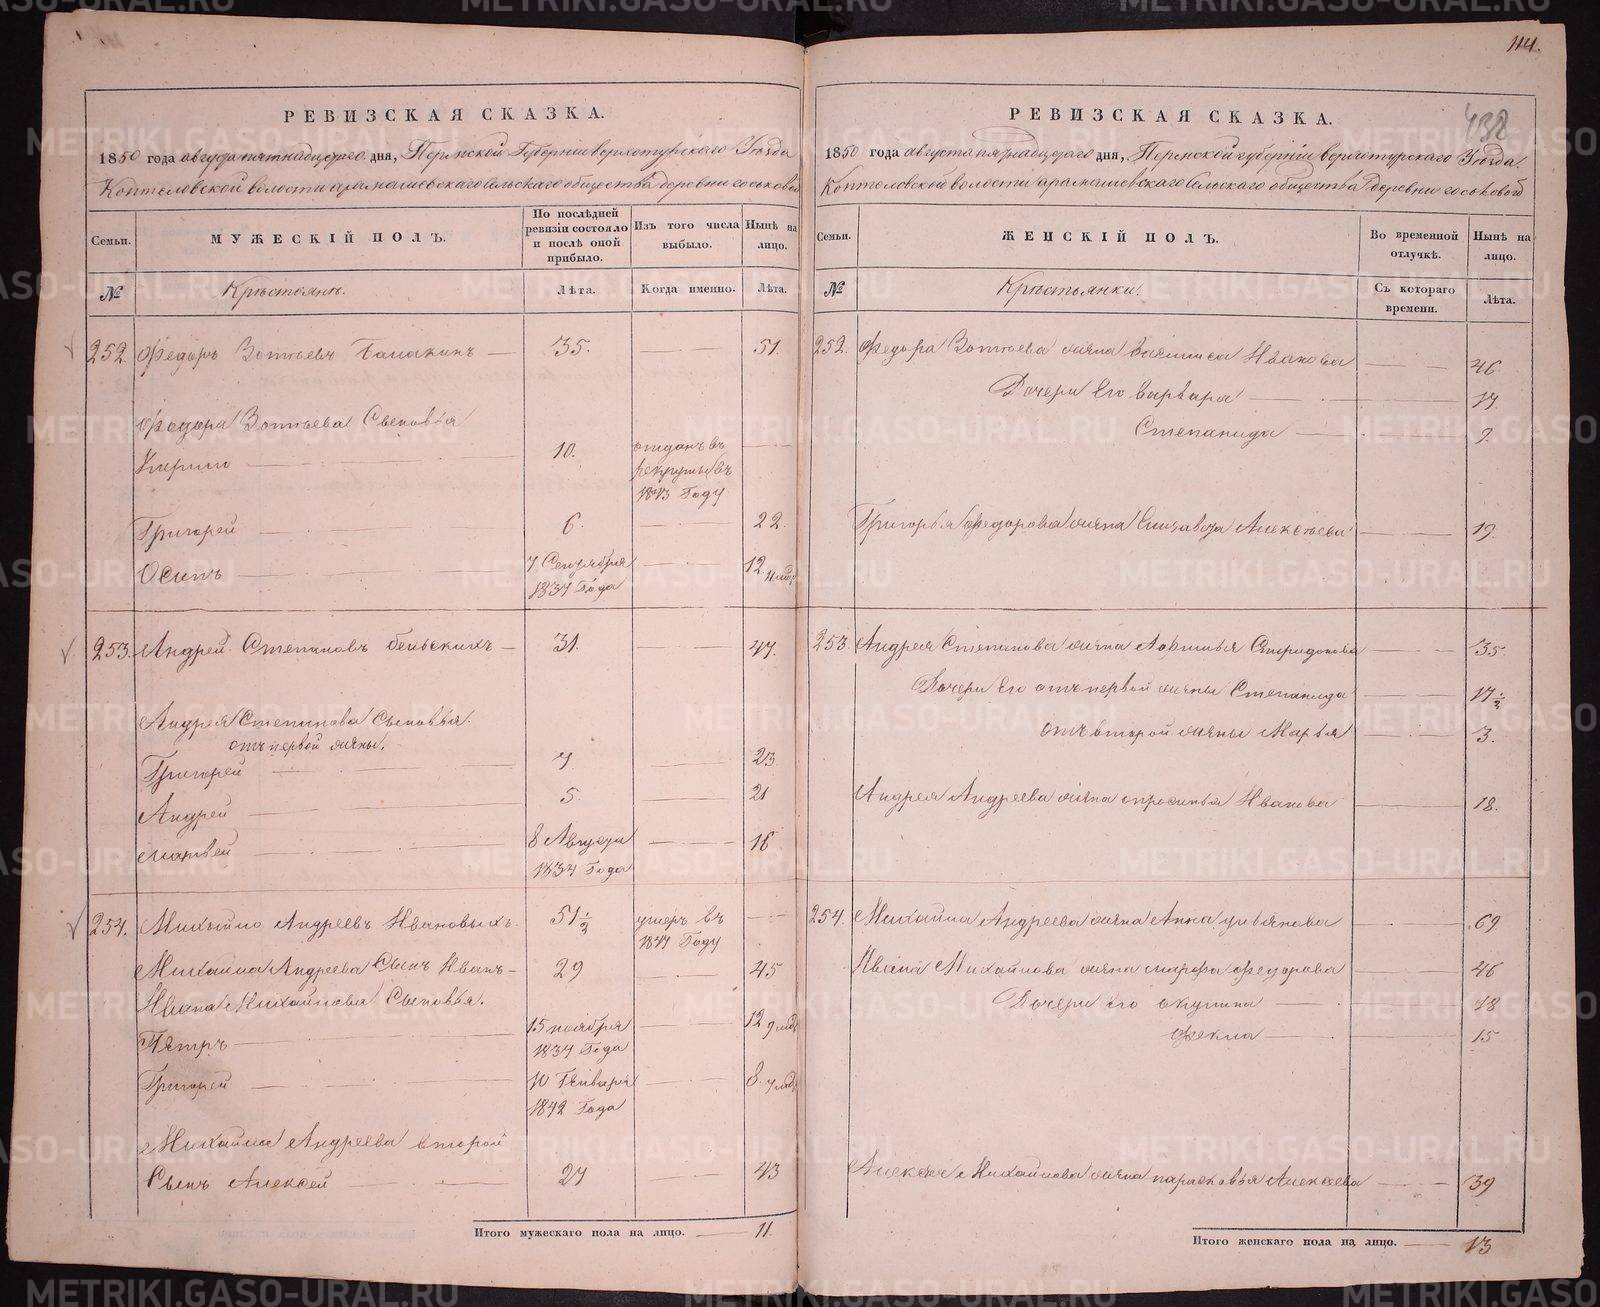 114.
438
РЕВИЗСКАЯ СКАЗКА.
1850 года августа пятнадцатого дня, Пермской Губернии верхотурского Уѣзда
Коптеловской волости арамашевского Сельского общества деревни
Семьи.
МУЖЕСКІЙ ПОЛЪ.
По послѣдней ревизіи состояло и послѣ оной прибыло.
Изъ того числа выбыло.
Нынѣ на лицо.
№
Крѣстьянѣ.
Лѣта.
Когда именно.
Лѣта.
252. Федоръ Зотѣевъ — 35. — 51.
Федора Зотѣева Сыновья
Кирило — 10. отданъ въ
рекруты въ
1843 Году
Григорей — 6. — 22.
Осипъ — 7 Сентября — 12
1837 Года
253. Андрей Степановъ бѣльскихъ — 31. — 47.
Андрея Степанова Сыновья
отъ первой жены.
Григорей — 7 — 23
Андрей — 5. — 21
матвей — 8 Августа — 16
1834 Года
254. Михайло Андреевъ Ивановыхъ 51 1/2 умеръ въ —
1847 Году
Михайла Андреева Сынъ Иванъ — 29 — 45
Ивана Михайлова Сыновья.
Пѣтръ — 15 ноября — 12 9 мѣс
1837 Года
Григорей — 10 Генваря — 8. 7 мѣс
1842 Года
Михайла Андреева второй
Сынъ Алексей — 27 — 43
Итого мужескаго пола на лицо. — 11.
РЕВИЗСКАЯ СКАЗКА.
1850 года августа пятнадцатого дня, Пермской губерніи верхотурского Уѣзда
Коптеловской волости арамашевского Сельского общества деревни
Семьи.
ЖЕНСКІЙ ПОЛЪ.
Во временной отлучкѣ.
Нынѣ на лицо.
№
Крѣстьянки.
Съ котораго времени.
Лѣта.
252. Федора Зотѣева жена Василиса Иванова — 46
Дочери Его варвара — 17
Степанида — 9.
Григорья Федорова жена Елизавета Алексѣева — 19.
253. Андрея Степанова жена Афимья Спиридонова — 35.
Дочери Его отъ первой жены Степанида — 17 1/2
отъ второй жены Марья — 3.
Андрея Андреева жена Афросинья Иванова — 18.
254. Михайла Андреева жена Анна — 69
Ивана Михайлова жена марфа федорова — 46
Дочери его акулина — 18
Фекла — 15
Алексея Михайлова жена парасковья Алексеева — 39
Итого женскаго пола на лицо. — 13
METRIKI.GASO-URAL.RU